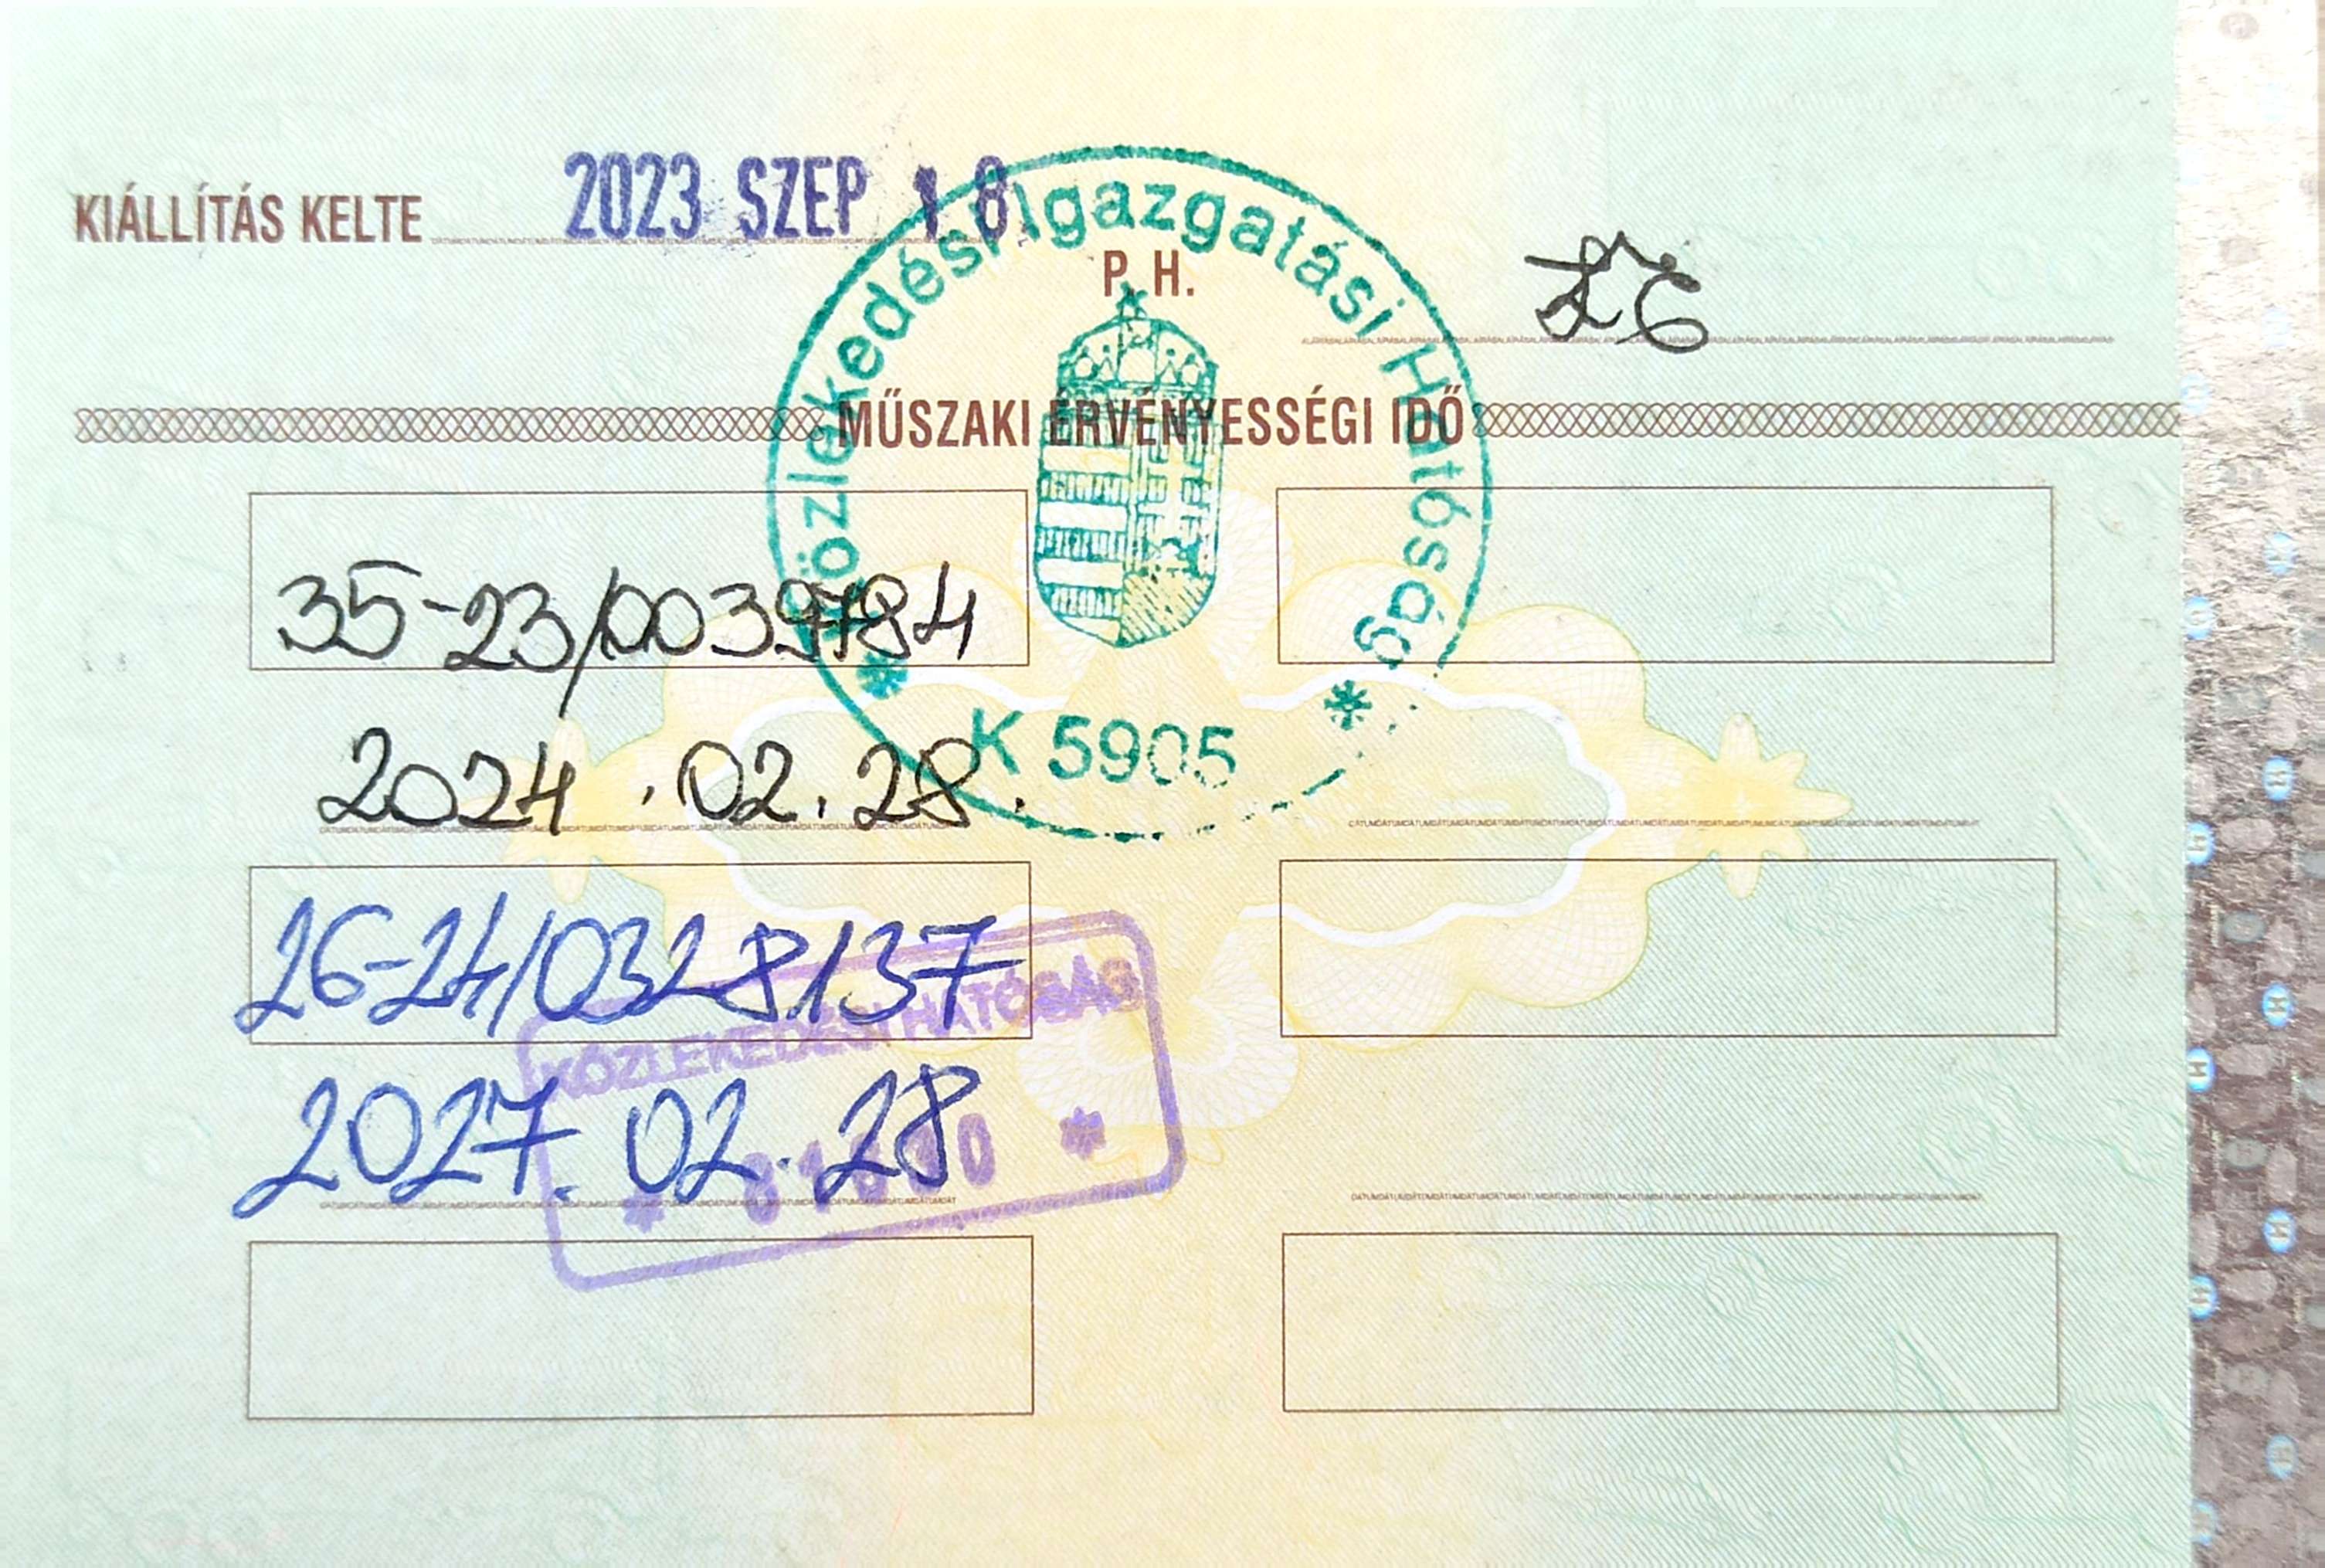 KIÁLLÍTÁS KELTE 2023 SZEP 18
Közlekedési Igazgatási Hatóság
P. H.
MŰSZAKI ÉRVÉNYESSÉGI IDŐ
35-23/0039784
K 5905
2024.02.28.
26-24/0328137
KÖZLEKEDÉSI HATÓSÁG
2027.02.28